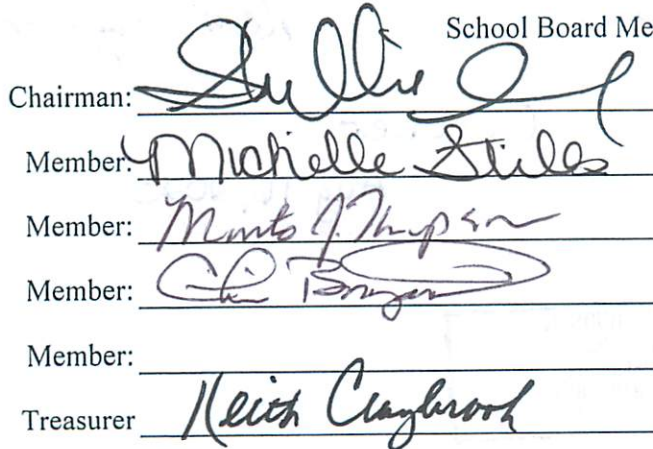 School Board Me
Chairman:
Member: Michelle Stills
Member: J. Thompson
Member:
Member:
Treasurer Keith Claybrook